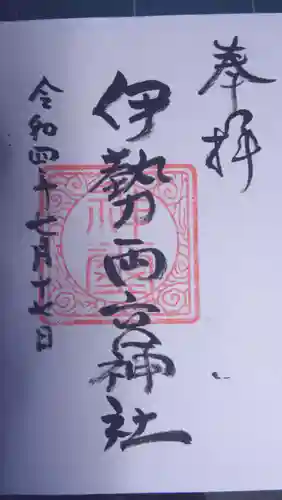 奉拝
伊勢両宮神社
令和四年七月十七日